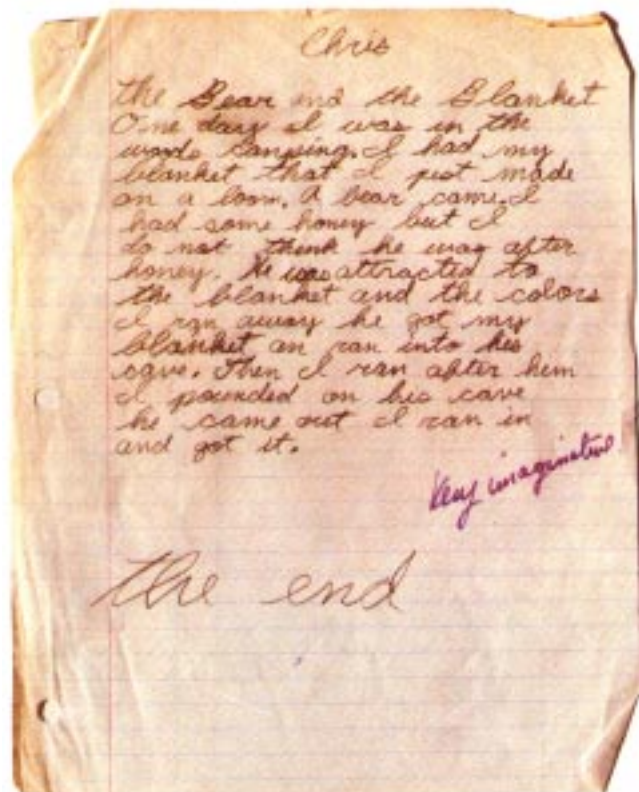 Chris
The Bear and the Blanket
One day I was in the
woods camping. I had my
blanket that I just made
on a loom. A bear came. I
had some honey but I
do not think he was after
honey. he was attracted to
the blanket and the colors
I ran away he got my
blanket an ran into his
cave. Then I ran after him
I pounded on his cave
he came out I ran in
and got it.
Very imaginative
the end